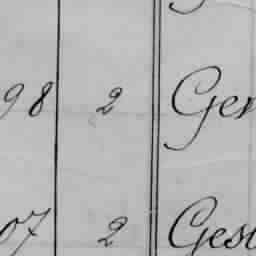 98 2 Ger
07 2 Gest